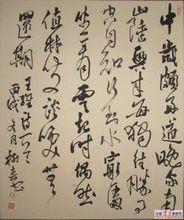 中歲頗好道晚家南
山陲興來每獨往勝事
空自知行到水窮處
坐看雲起時偶然
值林叟談笑無
還期
王維詩